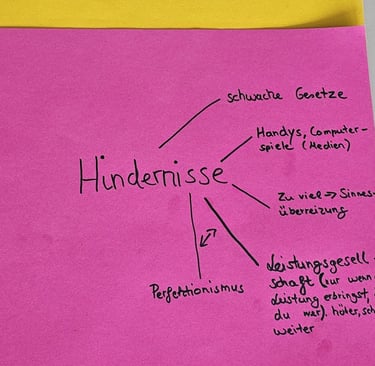 schwache Gesetze
Handys, Computer-
spiele (Medien)
Hindernisse
Zu viel => Sinnes-
überreizung
Perfektionismus
Leistungsgesell-
schaft (nur wenn
Leistung erbringst,
du wer). höher,
weiter